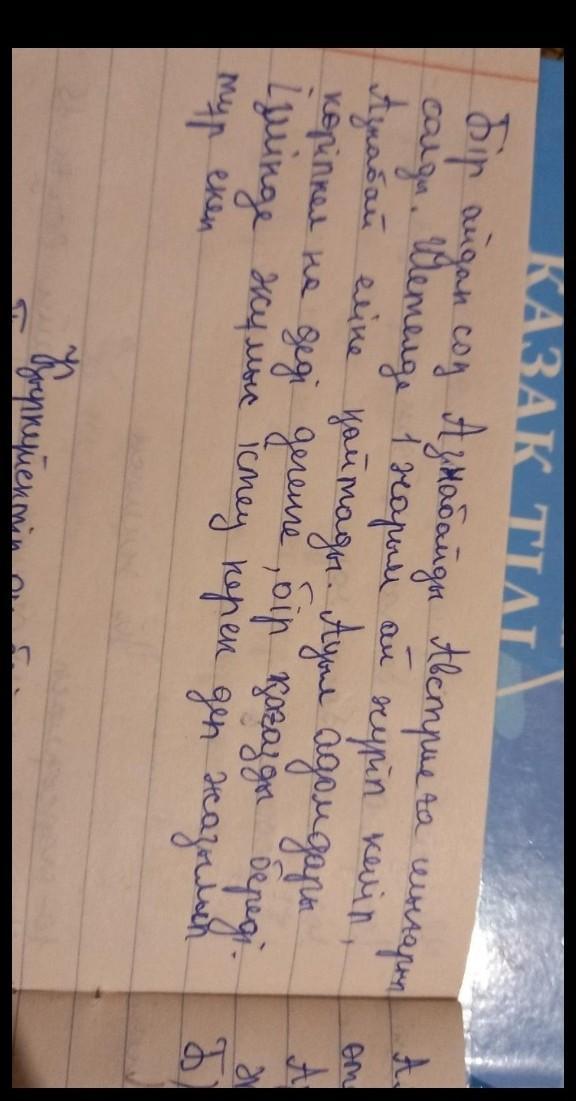 ҚАЗАҚ ТІЛІ
Бір айдан соң Ақнабайды Австрияға шығарып
салды. Шетелде 1 жарым ай жүріп келіп,
Ақнабай еліне қайтады. Ауыл адамдары
көріпкел не деді дегенге, бір қағазды береді.
Ішінде жұмыс істеу керек деп жазылып
тұр екен